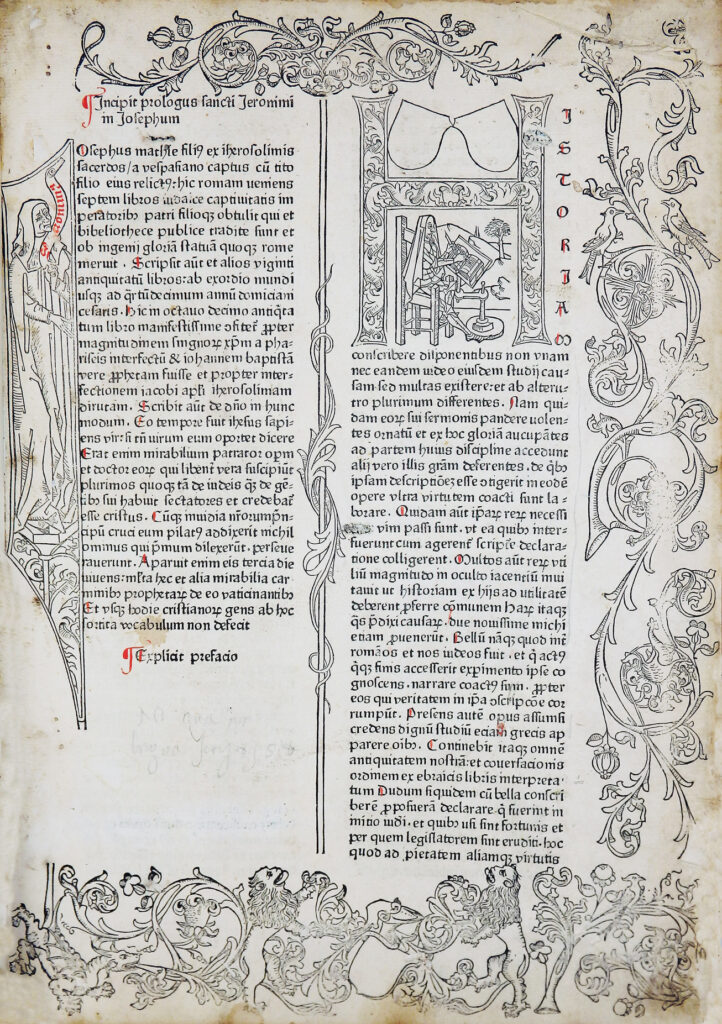 Incipit prologus sancti Jeronimi
in Josephum
Osephus mathie filiꝰ ex iherosolimis
sacerdos/a vespasiano captus cū tito
filio eius relictꝰ: hic romam veniens
septem libros iudaice captiuitatis im
peratoribꝰ patri filioqꝫ obtulit qui et
bibeliothece publice tradite sunt et
ob ingenij gloriā statuā quoqꝫ rome
meruit . Scripsit aūt et alios viginti
antiquitatū libros: ab exordio mundi
usqꝫ ad qͣrtūdecimum annū domiciani
cesaris . Hic in octauo decimo antiqͥta
tum libro manifestissime ꝓpter
magnitudinem singnorꝫ xp̄m a pha-
riseis interfectū & iohannem baptistā
vere ꝓphetam fuisse et propter inter-
fectionem iacobi apl̓i iherosolimam
dirutam . Scribit aūt de dn̄o in hunc
modum . Eo tempore fuit ihesus sapi
ens vir: si tn̄ virum eum oportet dicere
Erat enim mirabilium patrator opm̄
et doctor eorꝫ qui libent vera suscipiūt
plurimos quoqꝫ tā de iudeis qͣꝫ de gē-
tibꝰ sui habuit sectatores et credebāt
esse cristus . Cūqꝫ inuidia nr̄orum pͥn-
cipū cruci eum pilatꝰ addixerit nichil
ominus qui pͥmum dilexerūt . perseue
rauerunt . Aparuit enim eis tercia die
viuens: hec et alia mirabilia car
minibꝰ prophetarꝫ de eo vaticinantibꝰ
Et vsqꝫ hodie cristianorꝫ gens ab hoc
sortita vocabulum non defecit
Explicit prefacio
H
ISTORIAM
conscribere disponentibus non vnam
nec eandem uideo eiusdem studij cau-
sam sed multas existere: et ab alteru-
tro plurimum differentes . Nam qui-
dam eorꝫ sui sermonis pandere uolen-
tes ornatū et ex hoc gloriā aucupātes
ad partem huius discipline accedunt
alij vero illis grām deferentes . de qͥbꝰ
ipsam descriptionēꝫ esse in eodē
opere vltra virtutem coacti sunt la-
borare . Quidam aūt ip̄arꝫ rerꝫ necessi
vim passi sunt . vt ea quibꝰ inter-
fuerunt cum agerent scripte declara-
tione colligerent . Multos aūt rerꝫ vti
liū magnitudo in oculto iacentiū inui
tauit ut historiam ex hijs ad utilitatē
deberent ꝓferre cōmunem Harꝫ itaqꝫ
qͣs p̄dixi causarꝫ . due nouissime michi
etiam ꝓuenerūt . Bellū nāqꝫ quod int̄
romāos et nos iudeos fuit . et qͥ actꝰ
qͥqꝫ finis accesserit expimento ipse co
gnoscens . narrare coactꝰ sum . ꝓpter
eos qui veritatem in ip̄a cōe cor
rumpūt . Presens autē opus assumsi
credens dignū studiū eciam grecis ap
parere oībꝰ . Continebit itaqꝫ omnē
antiquitatem nostrā: et couersacionis
ordinem ex ebraicis libris interpreta-
tum Dudum siquidem cū bella conscri
berē ꝓposuerā declarare . qͥ fuerint in
initio iudei . et quibꝰ usi sint fortunis et
per quem legislatorem sint eruditi . hoc
quod ad pietatem aliamqꝫ virtutis